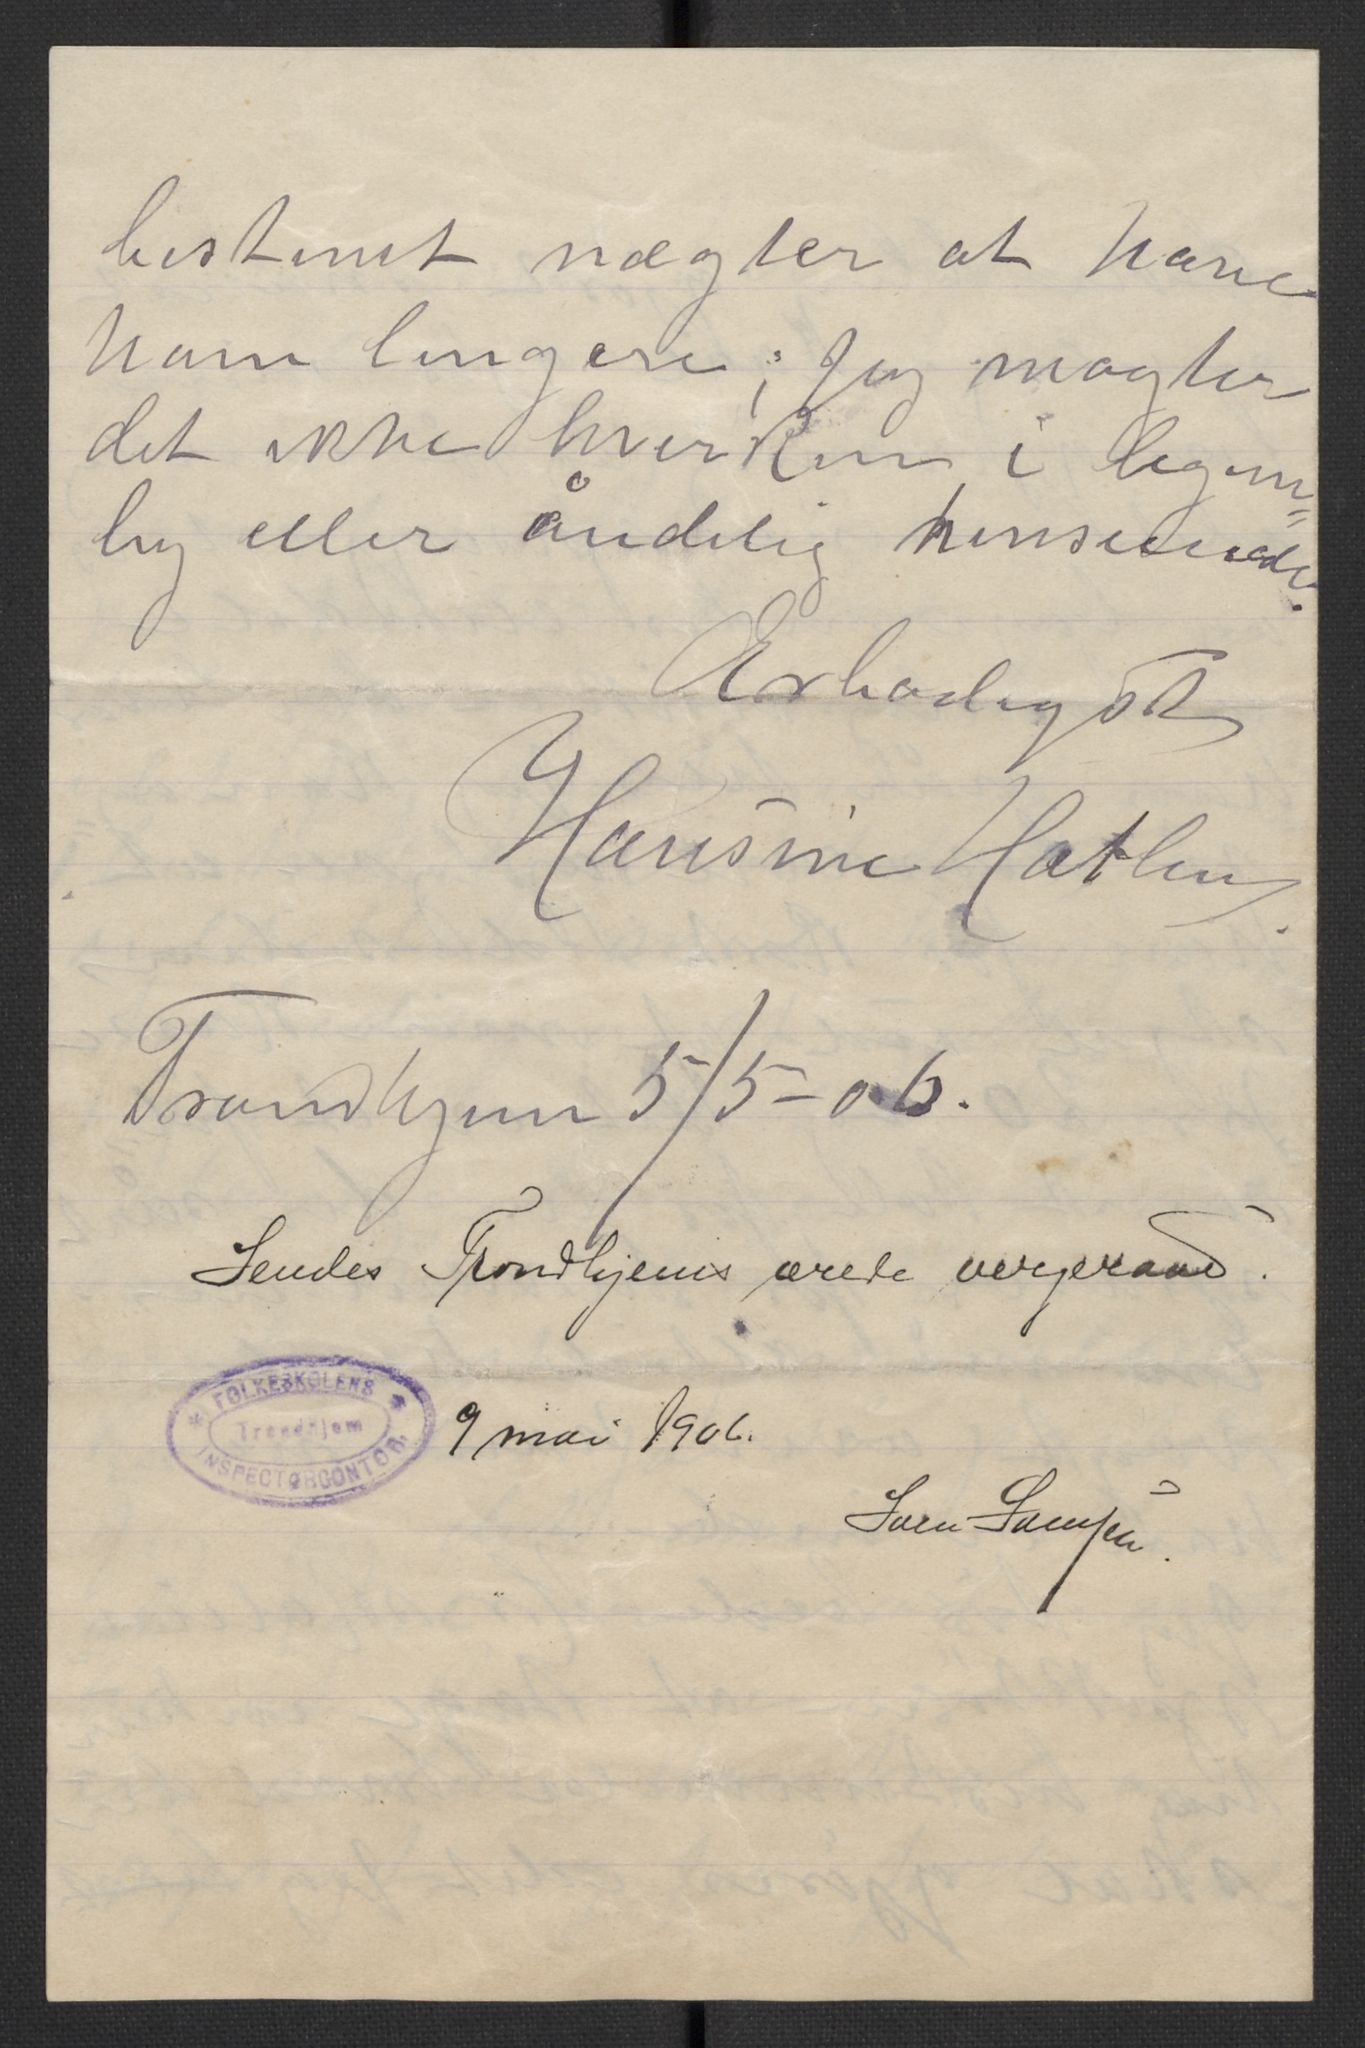 bestemt nægter at have
ham lengere; Jeg magter
det ikke hverken i legem=
lig eller åndelig henseende.
Ærbødigst
Hansine Hatlen.
Trondhjem 5/5-06.
Sendes Trondhjems ærede vergeraad.
FOLKESKOLENS
Trondhjem
INSPECTØRCONTOR.
9 mai 1906.